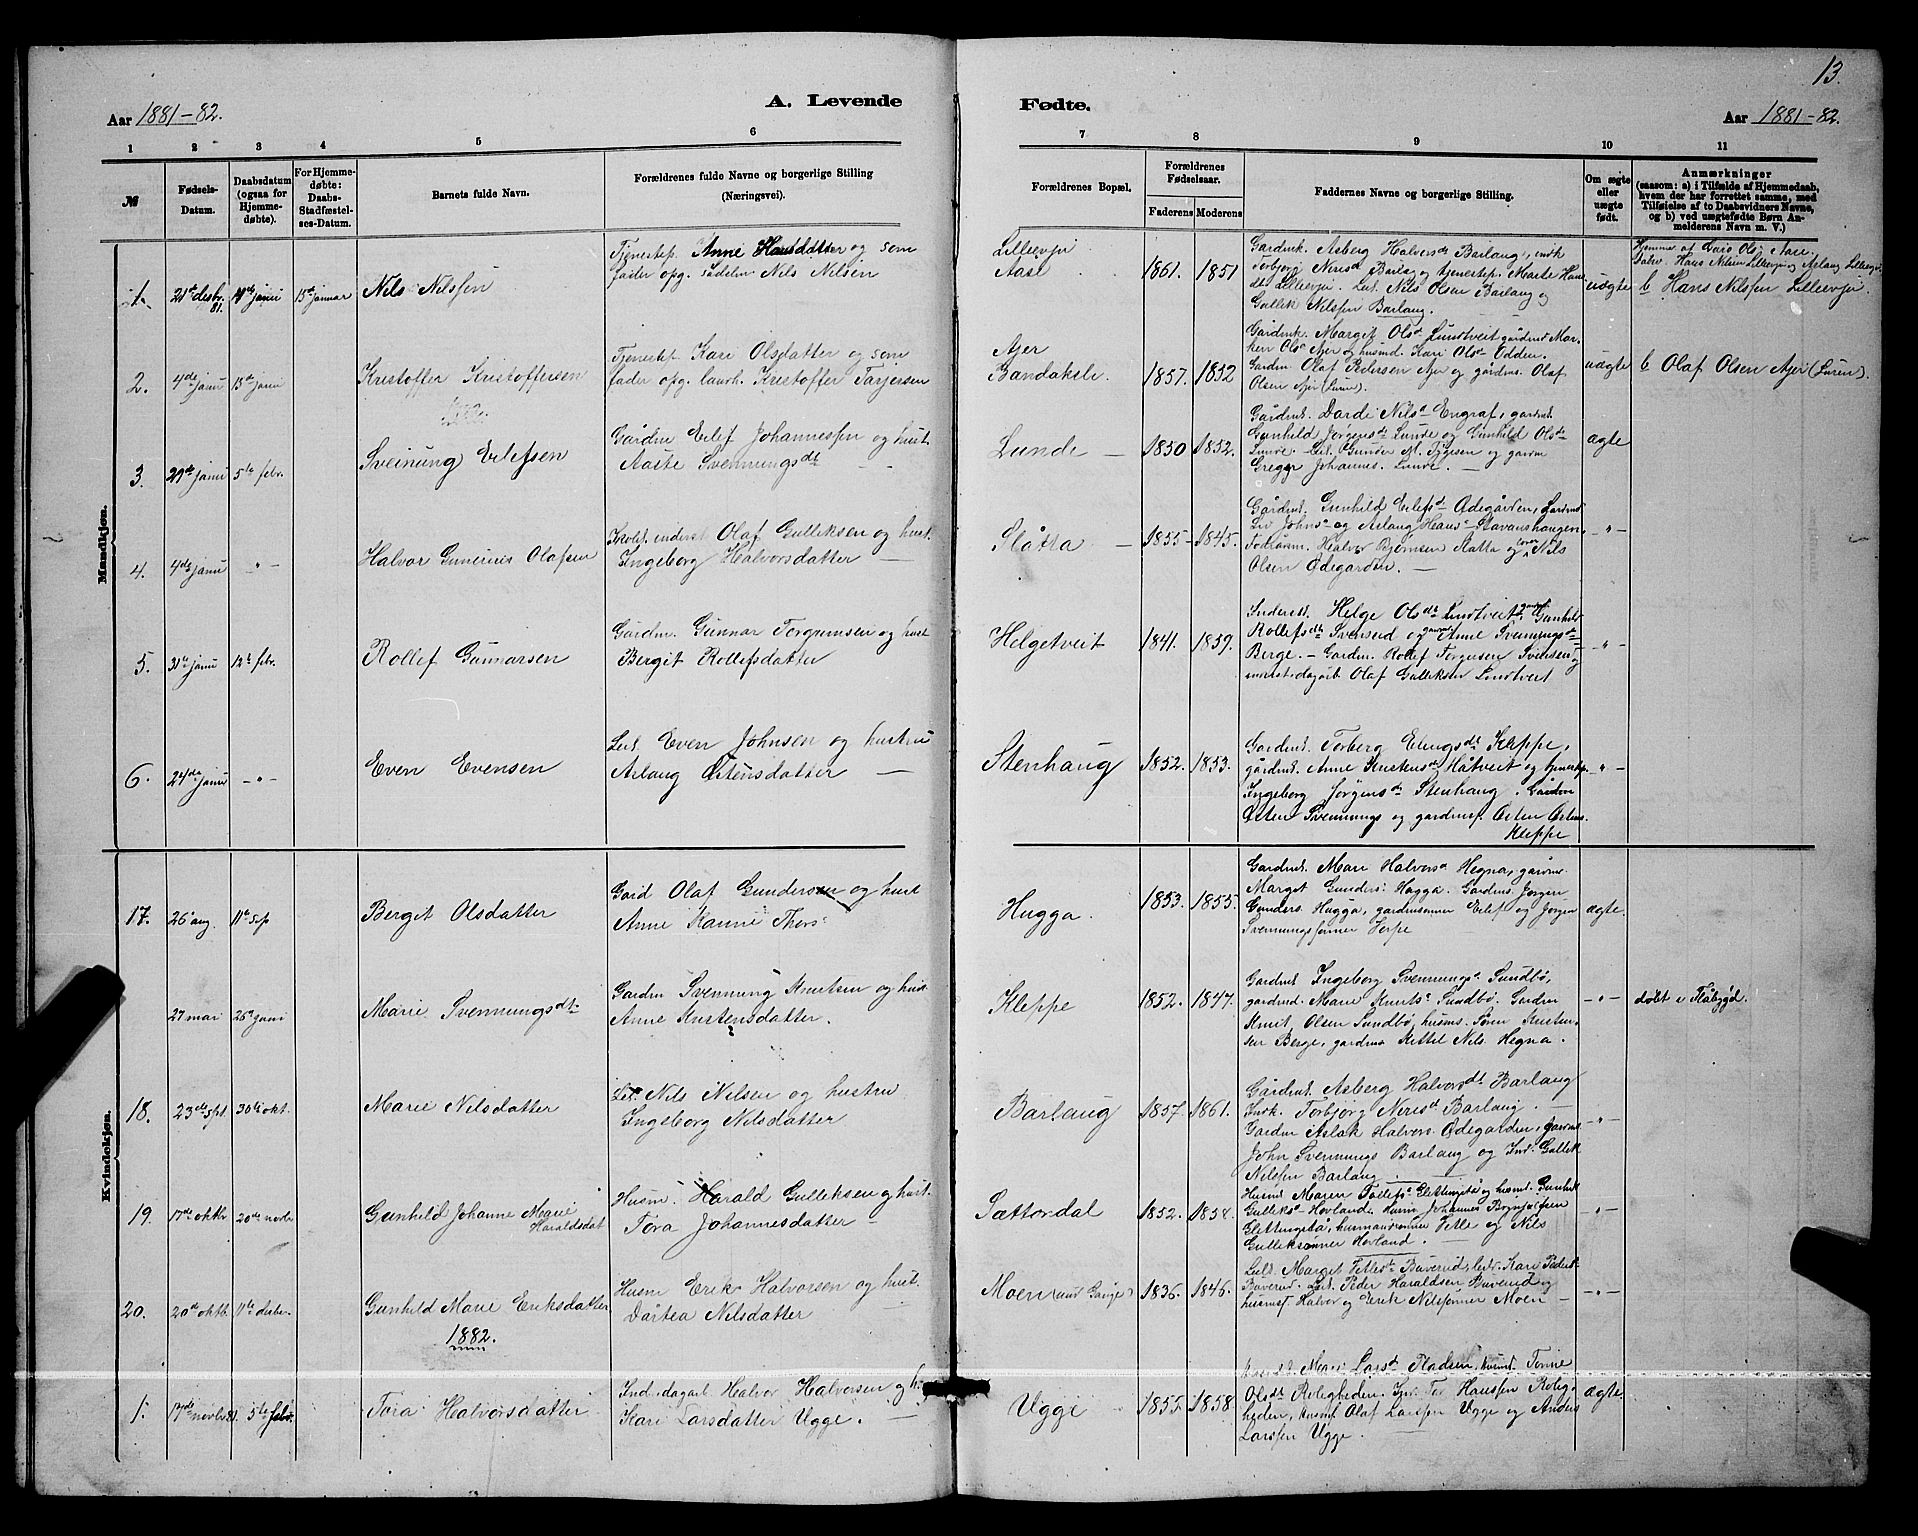 13.
A. Levende Fødte.
Aar 1881-82.
Aar 1881-82.
1 2 3 4 5 6 7 8 9 10 11
№
Fødsels-Datum.
Daabsdatum (ogsaa for Hjemme-døbte).
For Hjemme-døbte: Daabs-Stadfæstel-ses-Datum.
Barnets fulde Navn.
Forældrenes fulde Navne og borgerlige Stilling (Næringsvei).
Forældrenes Bopæl.
Forældrenes Fødselsaar.
Faderens Moderens
Faddernes Navne og borgerlige Stilling.
Om ægte eller uægte født.
Anmærkninger
(saasom: a) i Tilfælde af Hjemmedaab, hvem der har forrettet samme, med Tilføielse af to Daabsvidners Navne, og b) ved uægtefødte Børn An-melderens Navn m. V.)
Mandkjøn.
1. 21de desbr. 81. 15de januar Nils Nilsen
Tjenestep. Anne Hansdatter og som
fader opg. Nils Nilsen
Lilleevju
Aase
1861. 1851
Gardmk. Asberg Halvorsdt Barlaug, indk
Torbjørg Nerisd Barlaug og tjenestep. Marte Hans
dt Lilleevju. Nils Olsen Barlaug og
Gullik Nilssen Barlaug.
uægte
b Hans Nilssen Lilleevju.
2. 4de janu 15de janu Kristoffer Kristoffersen
Tjenestep. Kari Olsdatter og som
fader opg. Kristoffer Tarjersen
Ajer
Bandaksli.
1857. 1852
Gårdmk. Margit Olsd Lundtveit gårdmd Mar-
Olsd Ajer og husmd. Kari Olsd Odden.
Gardm Olaf Pedersen Ajer og gårdms. Olaf
Olsen Ajer (Luren).
uægte
b Olaf Olsen Ajer (Luren).
3. 29de janu 5te febr. Sveinung Eilefsen
Gårdm Eilef Johannessen og hust.
Aaste Svennungsdt
Lunde
1850 1852.
Gårdmk. Darde Nilsd Engraf, gardmk.
Gunhild Jørgensdt Lunde og Gunhild Olsdt
Lunde. Gunder M. Tygesen og gardm
Gregar Johannes. Lunde.
ægte
4. 4de janu -"- Halvor Gunerius Olafsen
Olaf Gulliksen og hust.
Ingeborg Halvorsdatter
Slåtta
1855 1845.
Gårdmk. Gunhild Eilefsd Ødegården,
Liv Johnsd og Aslaug Hansd Stavanshaugen
Halvor Bjørnsen Aatta og Nils
Olsen Ødegarden.
-"-
5. 31te janu 12te febr. Rollef Gunnarsen
Gårdm. Gunnar Torgrimsen og hust
Bergit Rollefsdatter
Helgetveit
1841. 1859.
Inderst. Helge Olsdt Lindtveit, Gunhild
Rollefsdt Svenseid og Anne Svennungsdt
Berge. Gardm. Rollef Torgersen Svensen og
inderst. dagarb. Olaf Gulliksen Lindtveit
-"-
6. 24de janu -"- Even Evensen
Leil. Even Johnsen og hustru
Aslaug Østensdatter
Stenhaug
1852. 1853.
Gardmk. Torberg Elingsdt Kleppe,
gårdmk. Anne Kristensdt Håtveit og tjenestp.
Ingeborg Jørgensdt Stenhaug. Gårdm
Østen Svennungs og gardmsf. Østen Østens.
Kleppe
-"-
Kvindekjøn.
17. 26 aug. 11te sep Bergit Olsdatter
Gard Olaf Gundersen og hust
Anne Kanne Thors:
Hugga.
1853. 1855.
Gardmk. Mari Halvorsd Hegna, gårdmk.
Marget Gunders: Hugga. Gardms. Jørgen
Gunders. Hugga, gardmsønner Eilef og Jørgen
Svennungssønner Verpe
ægte
27 mai 26de juni Marie Svennungsdt
Gardm Svennung Knutsen og hust
Anne Kristensdatter.
Kleppe
1852. 1847.
Gardmk. Ingeborg Svennungsd Sundbø,
gardmd. Marie Knutsd Sundbø. Gardm
Knut Olsen Sundbø, husms. Søren Kristen-
sen Berge, gardms Kittel Nils. Hegna.
-"-
døbt i Flåbygd.
18. 23de sept 30te okt. Marie Nilsdatter
Lei. Nils Nilsen og hustru
Ingeborg Nilsdatter
Barlaug
1857. 1861.
Gårdmk. Asberg Halvorsdt Barlaug
Indk. Torbjørg Nerisd Barlaug.
Gardm Aslak Halvors. Ødegarden, gardms
John Svennungs Barlaug og Ind. Gullik
Nilssen Barlaug
-"-
19. 17de oktbr 20de novbr Gunhild Johanne Marie
Haraldsdat
Husm. Harald Gulliksen og hust.
Tora Johannesdatter
Sættordal
1852. 1854.
Husmk. Maren Tollefsd Slettingstå og husmd. Gunhild
Gulliksd Hovland. Husm Johannes
Slettingstå, husmandssønner Tetle og Nils
Gulliksønner Hovland.
-"-
20. 20de oktb. 11te desbr. Gunhild Marie Eriksdatter
Husm Erik Halvorsen og hust.
Dårtea Nilsdatter
Moen
1836. 1846.
Leil. Margit Tetlesdt Buverud, Kari Peders
Buverud. Leil. Peder Haraldsen Buverud og
husmsf. Halvor og Erik Nilssønner Moen
-"-
1882.
1. 17de novbr 81. 5te febr. Tora Halvorsdatter
Ind. dagarb Halvor Halvorsen og
Kari Larsdatter Ugge.
Ugge
1855. 1858.
Mari Larsd Pladsen, husmd. Tonne
Olsdt Roligheden. Tor Hanssen Rolig-
heden, husmsf. Olaf Larssen Ugge og Anders
Larssen Ugge.
ægte